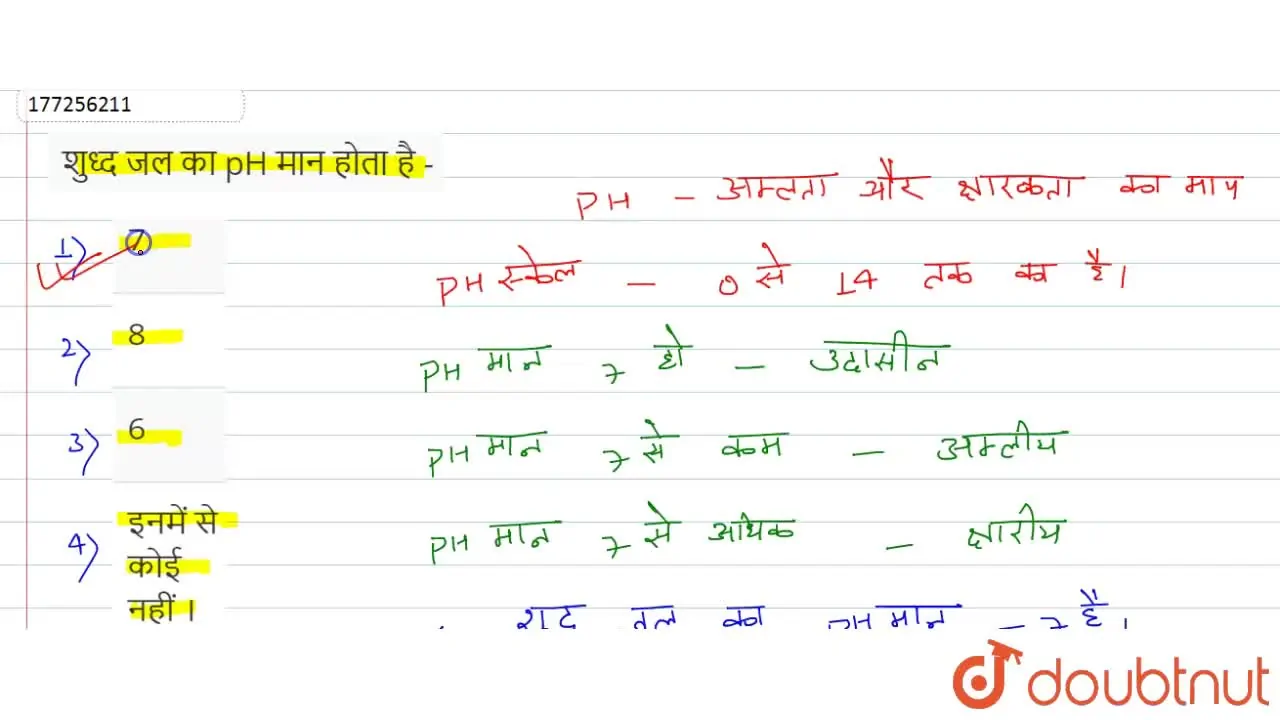 177256211
शुध्द जल का pH मान होता है -
PH - अम्लता और क्षारकता का माप
1) 7.
PH स्केल - 0 से 14 तक का है।
2) 8
PH मान 7 हो - उदासीन
3) 6
PH मान 7 से कम - अम्लीय
4) इनमें से
कोई
नहीं।
PH मान 7 से अधिक - क्षारीय
शुद्ध जल का PH मान - 7 है।
doubtnut